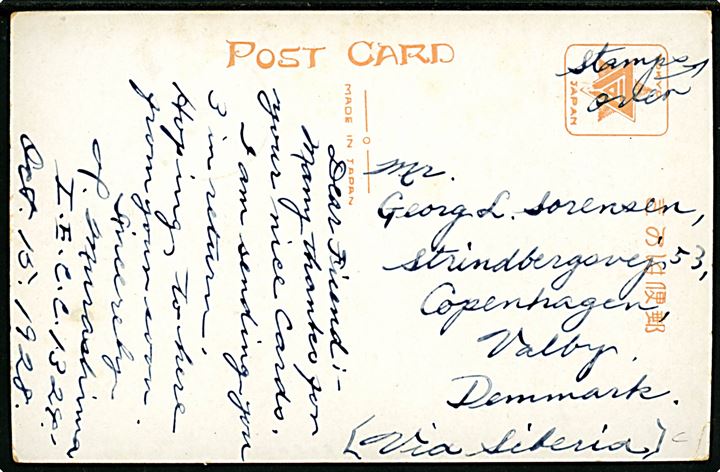 POST CARD
MADE IN JAPAN
JAPAN
Stamps
over
Mr.
Georg L. Sorensen,
Strindbergsvej 53,
Copenhagen,
Valby.
Demmark.
[Via Siberia]
郵便はがき
Dear Friend:-
Many thanks for
your nice cards.
I am sending you
3 in return.
Hoping to here
from you soon
Sincerely
Murashima
I.E.C.C. 1328.-
Oct. 15, 1928.